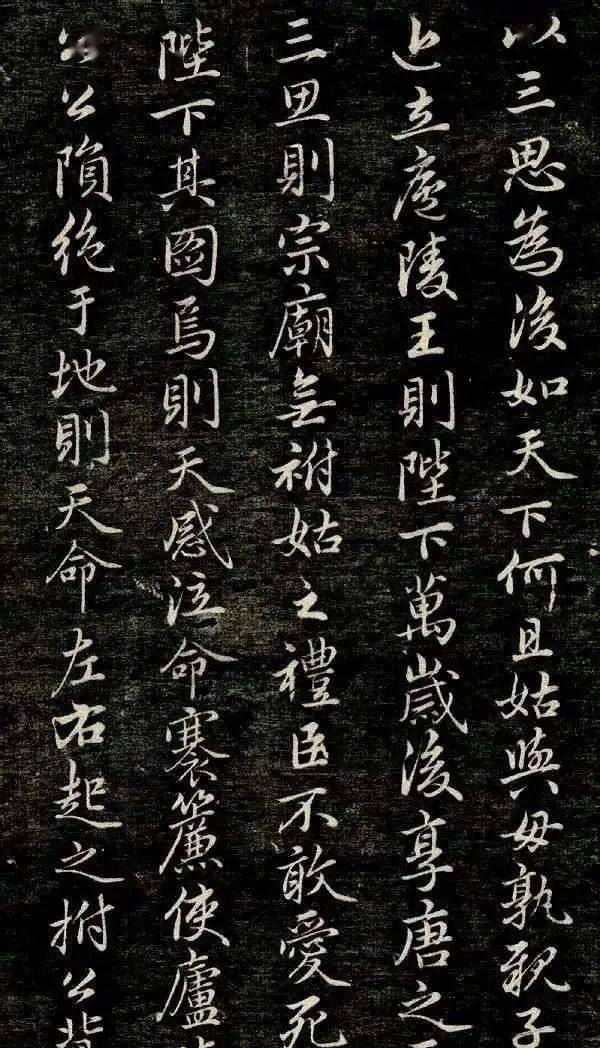 以三思為後如天下何且姑與母孰親子
近立廬陵王則陛下萬歲後享唐之
三思則宗廟無祔姑之禮臣不敢愛死
陛下其圖焉則天感泣命褰簾使廬
公公隕絕于地則天命左右起之拊公背